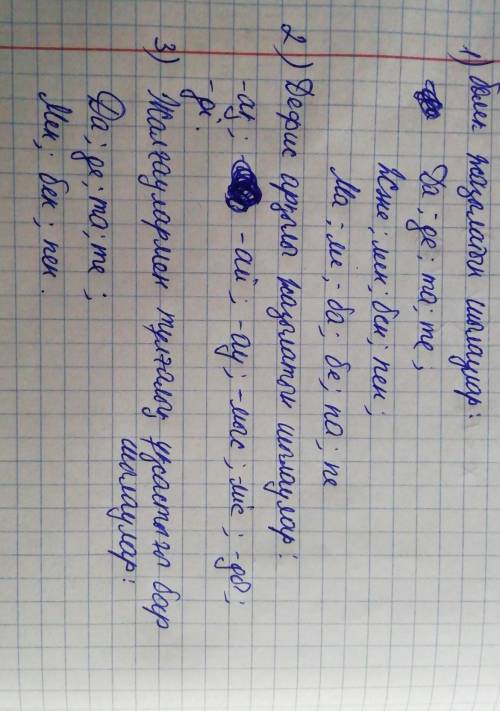 1) Бөлек жазылатын шылаулар:
Да; де; та; те;
Және; мен; бен; пен;
Ма; ме; ба; бе; па; пе
2) Дефис арқылы жазылатын шылаулар:
-ау; -ай; -ау; -мыс; -міс; -ды;
-ді.
3) Жалғаулармен тұлғалық ұқсастығы бар
шылаулар:
Да; де; та; те;
Мен; бен; пен.